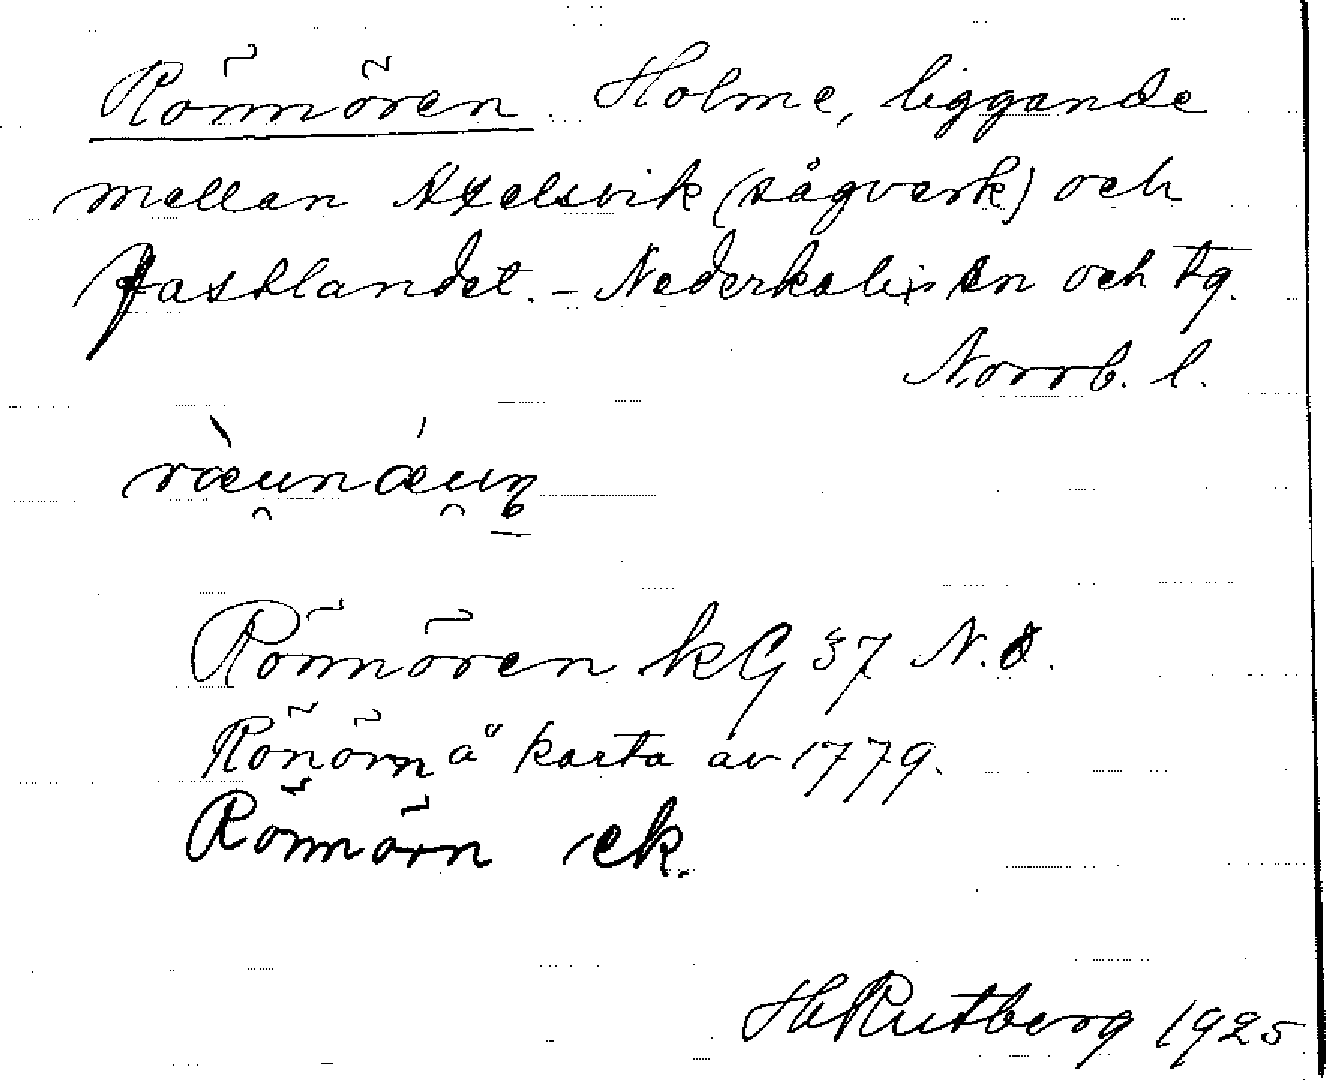 Rönnören. Holme, liggande
mellan Axelsvik (sågverk) och
fastlandet. – Nederkalix sn och tg.
Norrb. l.
Rönnören kG 37 N.O.
Rönörn å karta av 1779.
Rönnörn ek.
H Rutberg 1925